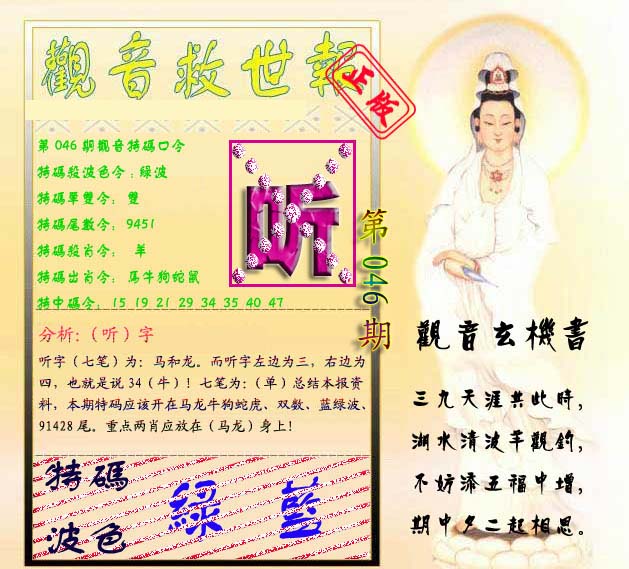 觀音救世報
正版
第 046 期觀音特碼口令
特碼殺波色令：綠波
特碼單雙令： 雙
特碼尾數令： 9451
特碼殺肖令： 羊
特碼出肖令： 馬牛狗蛇鼠
特中碼令： 15 19 21 29 34 35 40 47
听
第 046 期
分析:（听）字
听字（七笔）为：马和龙。而听字左边为三，右边为
四，也就是说 34（牛）！七笔为：（单）总结本报资
料，本期特码应该开在马龙牛狗蛇虎、双数、蓝绿波、
91428 尾。重点两肖应放在（马龙）身上！
特碼
波色
綠 藍
觀音玄機書
三九天涯共此時，
湖水清波羊觀釣，
不妨添五福中增，
期中夕二起相思。